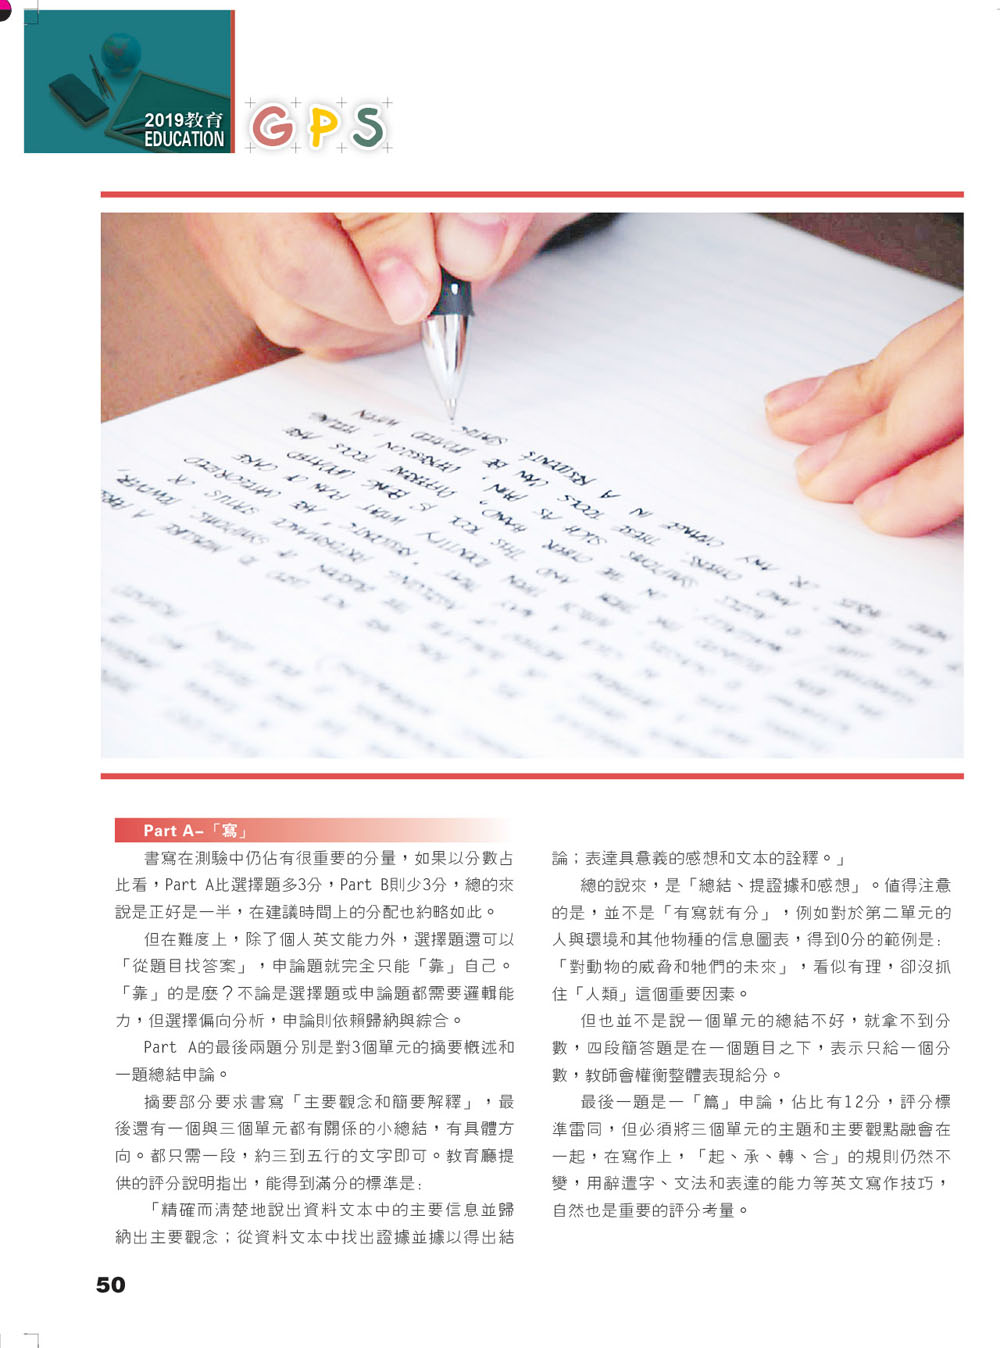 2019教育
EDUCATION
GPS
Part A-「寫」
書寫在測驗中仍佔有很重要的分量，如果以分數占
比看，Part A比選擇題多3分，Part B則少3分，總的來
說是正好是一半，在建議時間上的分配也約略如此。
但在難度上，除了個人英文能力外，選擇題還可以
「從題目找答案」，申論題就完全只能「靠」自己。
「靠」的是麼？不論是選擇題或申論題都需要邏輯能
力，但選擇偏向分析，申論則依賴歸納與綜合。
Part A的最後兩題分別是對3個單元的摘要概述和
一題總結申論。
摘要部分要求書寫「主要觀念和簡要解釋」，最
後還有一個與三個單元都有關係的小總結，有具體方
向。都只需一段，約三到五行的文字即可。教育廳提
供的評分說明指出，能得到滿分的標準是：
「精確而清楚地說出資料文本中的主要信息並歸
納出主要觀念；從資料文本中找出證據並據以得出結
論；表達具意義的感想和文本的詮釋。」
總的說來，是「總結、提證據和感想」。值得注意
的是，並不是「有寫就有分」，例如對於第二單元的
人與環境和其他物種的信息圖表，得到0分的範例是：
「對動物的威脅和牠們的未來」，看似有理，卻沒抓
住「人類」這個重要因素。
但也並不是說一個單元的總結不好，就拿不到分
數，四段簡答題是在一個題目之下，表示只給一個分
數，教師會權衡整體表現給分。
最後一題是一「篇」申論，佔比有12分，評分標
準雷同，但必須將三個單元的主題和主要觀點融會在
一起，在寫作上，「起、承、轉、合」的規則仍然不
變，用辭遣字、文法和表達的能力等英文寫作技巧，
自然也是重要的評分考量。
50